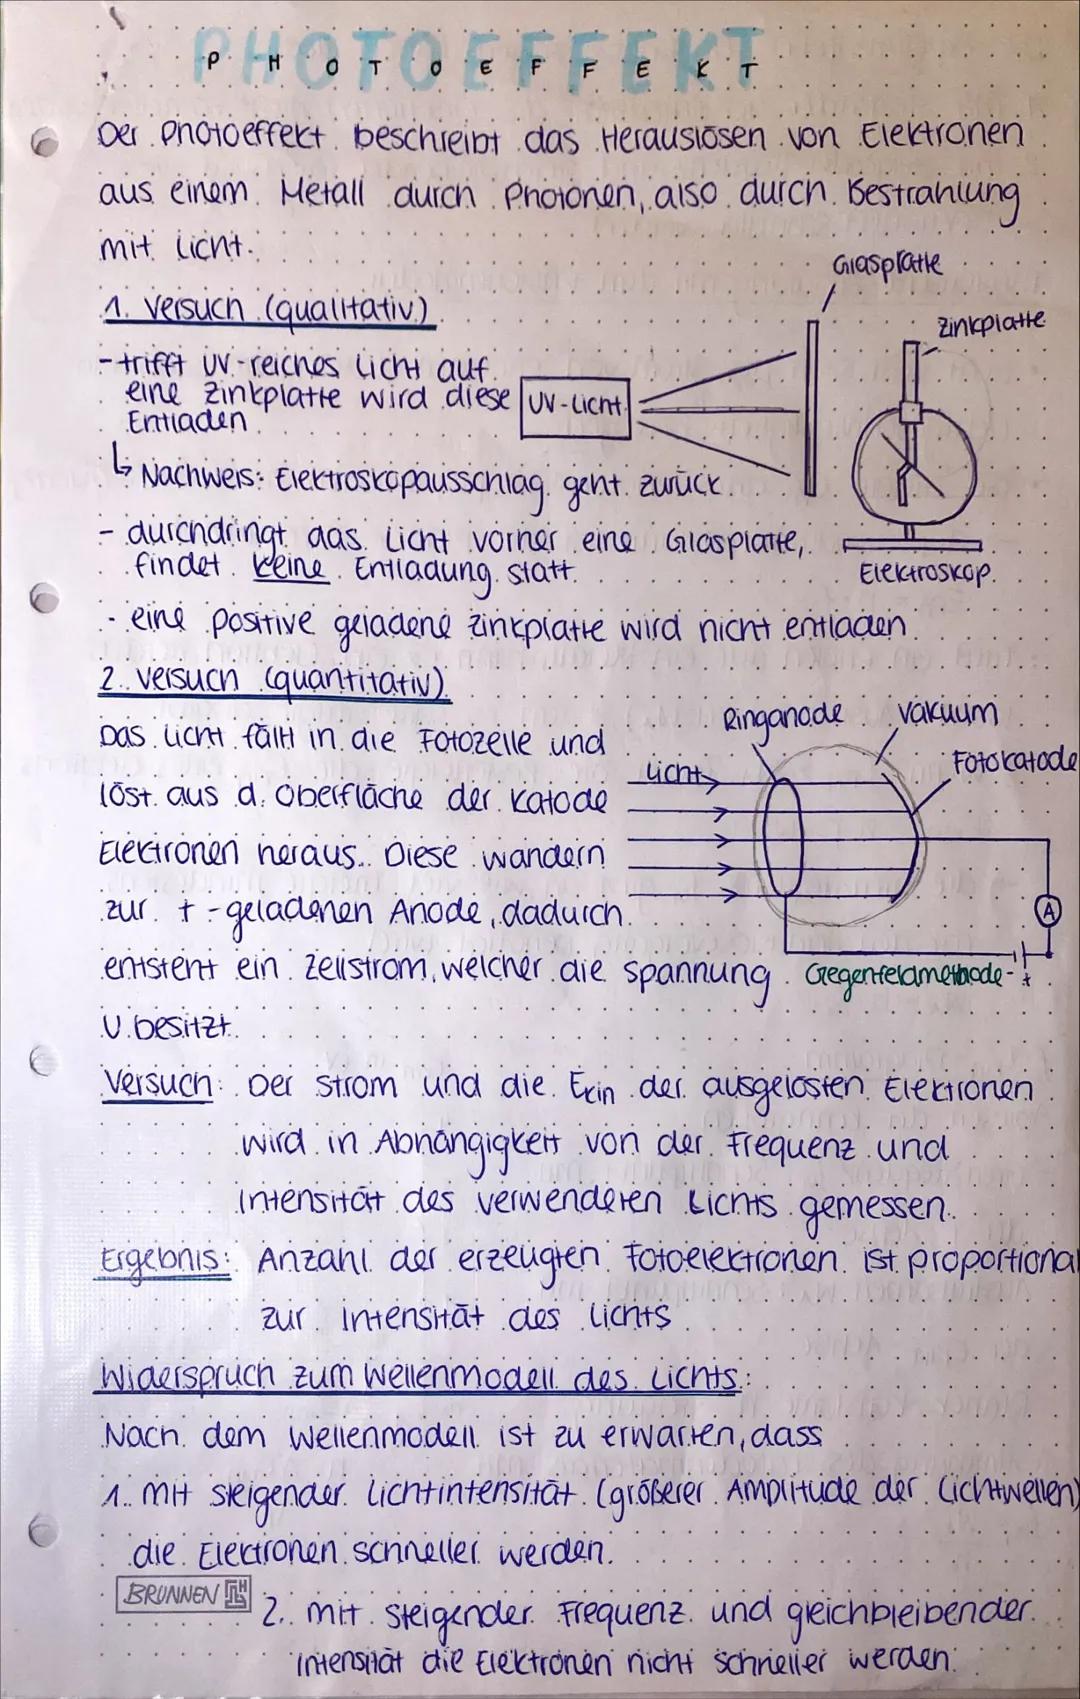 PHOTOEFFEKT
PHOTOEFFEKT
Der Photoeffekt beschreibt das Herauslösen von Elektronen
aus einem Metall durch Photonen, also durch Bestrahlung
mit Licht.
1. Versuch (qualitativ)
- trifft UV-reiches Licht auf
eine Zinkplatte wird diese
Entladen
↳ Nachweis: Elektroskopausschlag geht zurück
- durchdringt das Licht vorher eine Glasplatte,
findet keine Entladung statt.
- eine positive geladene Zinkplatte wird nicht entladen
Glasplatte
Zinkplatte
UV-Licht
Elektroskop
2. Versuch (quantitativ)
Das Licht fällt in die Fotozelle und
löst aus d. Oberfläche der Katode
Elektronen heraus. Diese wandern
zur + -geladenen Anode, dadurch
entsteht ein Zellstrom, welcher die Spannung
U besitzt.
Ringanode
Vakuum
Fotokatode
Licht
A
Gegenfeldmethode - +
Versuch: Der Strom und die Ekin der ausgelösten Elektronen
wird in Abhängigkeit von der Frequenz und
Intensität des verwenderen Lichts gemessen.
Ergebnis: Anzahl der erzeugten Fotoelektronen ist proportional
zur Intensität des Lichts
Widerspruch zum Wellenmodell des Lichts:
Nach dem Wellenmodell ist zu erwarten, dass
1. mit steigender Lichtintensität (größerer Amplitude der Lichtwellen)
die Elektronen schneller werden.
BRUNNEN
2. mit steigender Frequenz und gleichbleibender
Intensität die Elektronen nicht schneller werden.